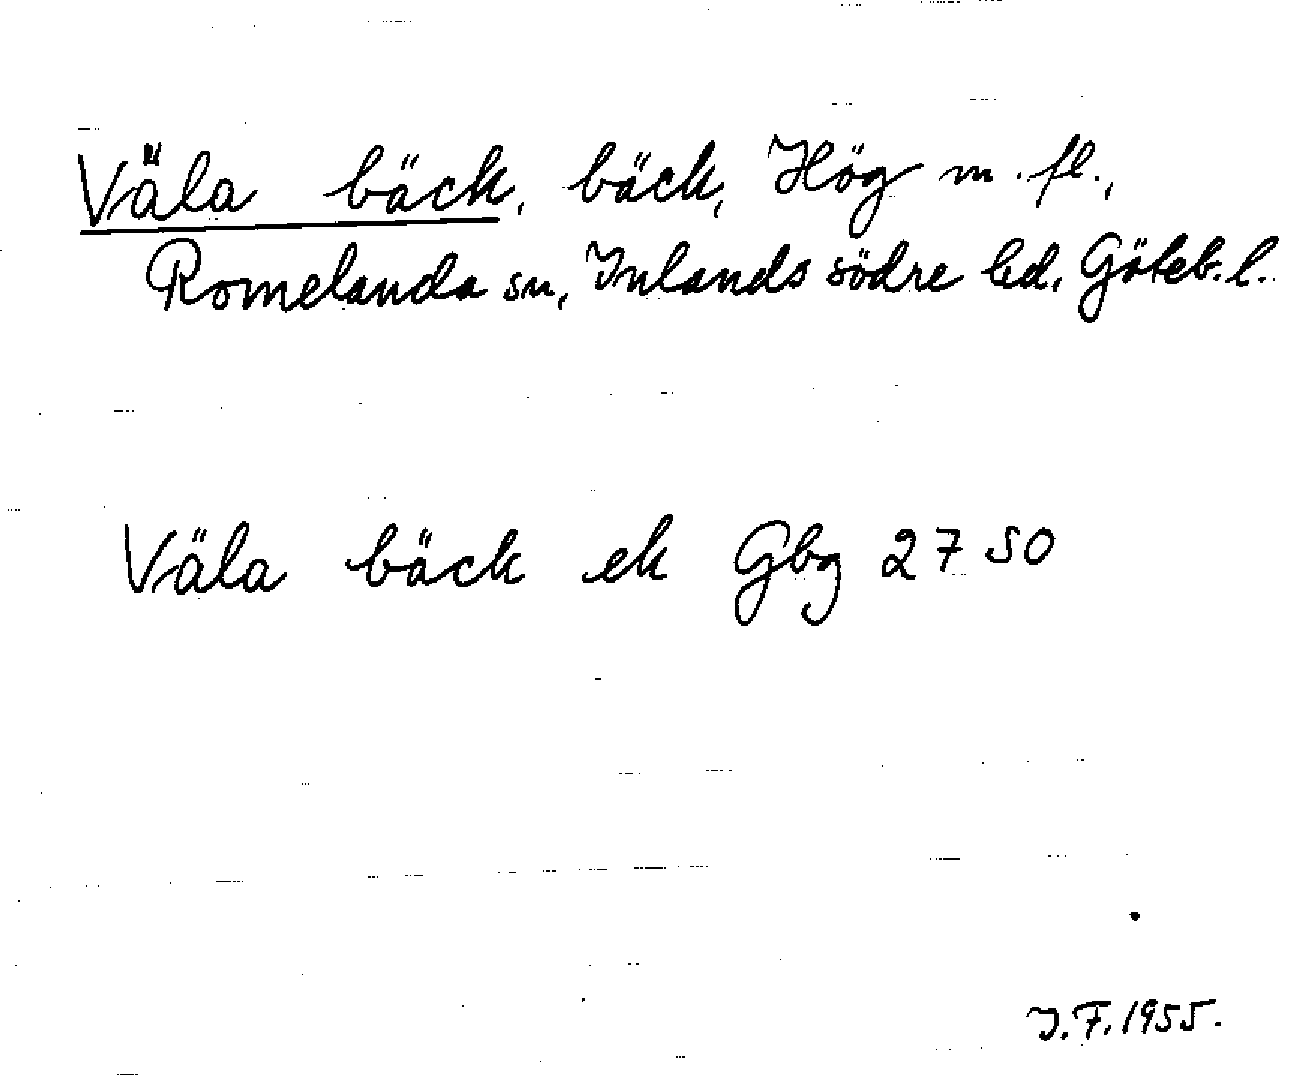 Väla bäck, bäck, Hög m. fl.,
Romelanda sn, Inlands södre hd, Göteb. l.
Väla bäck ek Gbg 2750
J.F. 1955.